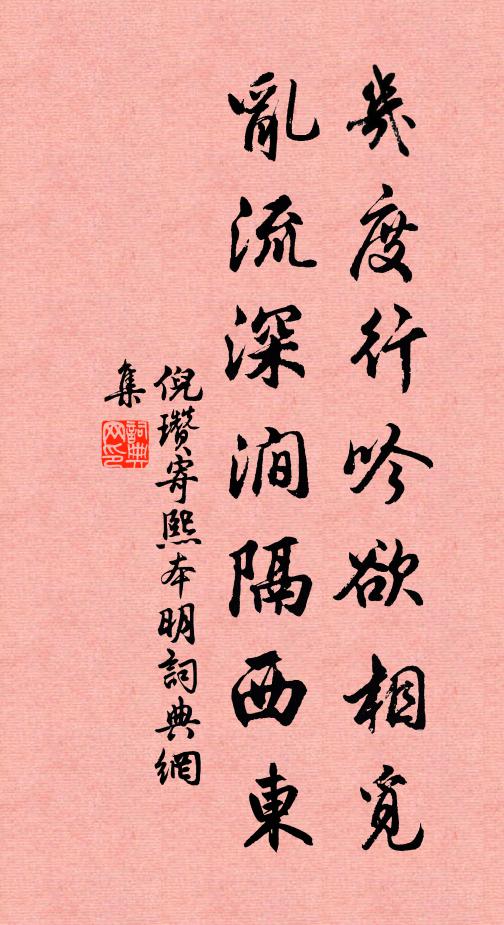 幾度行吟欲相覓
亂流深澗隔西東
倪瓚寄熙本明詞典網
集
詞典
网印